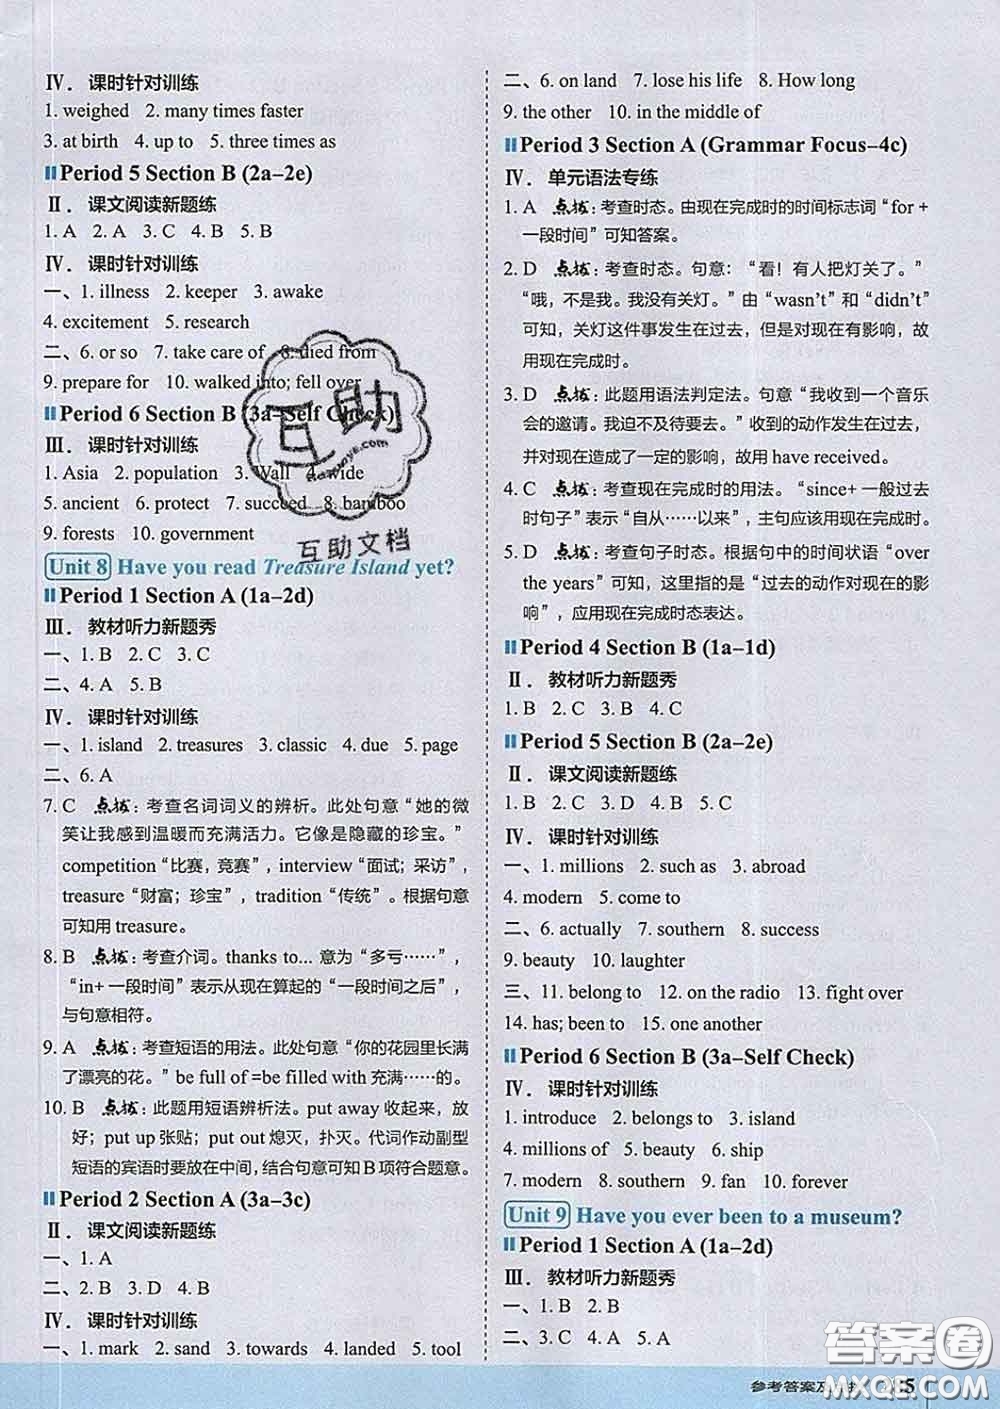 Ⅳ. 课时针对训练
1. weighed 2. many times faster
3. at birth 4. up to 5. three times as
Period 5 Section B (2a–2e)
Ⅱ. 课文阅读新题练
1. A 2. A 3. C 4. B 5. B
Ⅳ. 课时针对训练
一、1. illness 2. keeper 3. awake
4. excitement 5. research
二、6. or so 7. take care of 8. died from
9. prepare for 10. walked into; fell over
Period 6 Section B (3a–Self Check)
Ⅲ. 课时针对训练
1. Asia 2. population 3. Wall 4. wide
5. ancient 6. protect 7. succeed 8. bamboo
9. forests 10. government
Unit 8 Have you read Treasure Island yet?
Period 1 Section A (1a–2d)
Ⅲ. 教材听力新题秀
一、1. B 2. C 3. C
二、4. A 5. B
Ⅳ. 课时针对训练
一、1. island 2. treasures 3. classic 4. due 5. page
二、6. A
7. C 点拨：考查名词词义的辨析。此处句意“她的微
笑让我感到温暖而充满活力。它像是隐藏的珍宝。”
competition“比赛，竞赛”，interview“面试；采访”，
treasure“财富；珍宝”，tradition“传统”。根据句意
可知用 treasure。
8. B 点拨：考查介词。thanks to... 意为“多亏……”，
“in+ 一段时间”表示从现在算起的“一段时间之后”，
与句意相符。
9. A 点拨：考查短语的用法。此处句意“你的花园里长满
了漂亮的花。”be full of =be filled with 充满……的。
10. B 点拨：此题用短语辨析法。put away 收起来，放
好；put up 张贴；put out 熄灭，扑灭。代词作动副型
短语的宾语时要放在中间，结合句意可知 B 项符合题意。
Period 2 Section A (3a–3c)
Ⅱ. 课文阅读新题练
一、1. A
二、2. B 3. D 4. B
Ⅳ. 课时针对训练
一、1. mark 2. sand 3. towards 4. landed 5. tool
二、6. on land 7. lose his life 8. How long
9. the other 10. in the middle of
Period 3 Section A (Grammar Focus–4c)
Ⅳ. 单元语法专练
1. A 点拨：考查时态。由现在完成时的时间标志词“for +
一段时间”可知答案。
2. D 点拨：考查时态。句意：“看！有人把灯关了。”
“哦，不是我。我没有关灯。”由“wasn't”和“didn't”
可知，关灯这件事发生在过去，但是对现在有影响，故
用现在完成时。
3. D 点拨：此题用语法判定法。句意“我收到一个音乐
会的邀请。我迫不及待要去。”收到的动作发生在过去，
并对现在造成了一定的影响，故用 have received。
4. C 点拨：考查现在完成时的用法。“since+ 一般过去
时句子”表示“自从……以来”，主句应该用现在完成时。
5. D 点拨：考查句子时态。根据句中的时间状语“over
the years”可知，这里指的是“过去的动作对现在的影
响”，应用现在完成时态表达。
Period 4 Section B (1a–1d)
Ⅱ. 教材听力新题秀
1. B 2. C 3. B 4. A 5. C
Period 5 Section B (2a–2e)
Ⅱ. 课文阅读新题练
1. B 2. C 3. D 4. B 5. C
Ⅳ. 课时针对训练
一、1. millions 2. such as 3. abroad
4. modern 5. come to
二、6. actually 7. southern 8. success
9. beauty 10. laughter
三、11. belong to 12. on the radio 13. fight over
14. has; been to 15. one another
Period 6 Section B (3a–Self Check)
Ⅳ. 课时针对训练
1. introduce 2. belongs to 3. island
4. millions of 5. beauty 6. ship
7. modern 8. southern 9. fan 10. forever
Unit 9 Have you ever been to a museum?
Period 1 Section A (1a–2d)
Ⅲ. 教材听力新题秀
一、1. B 2. B
二、3. C 4. A 5. A
互助
互助文档
答案圈
MXQE.COM
参考答案及